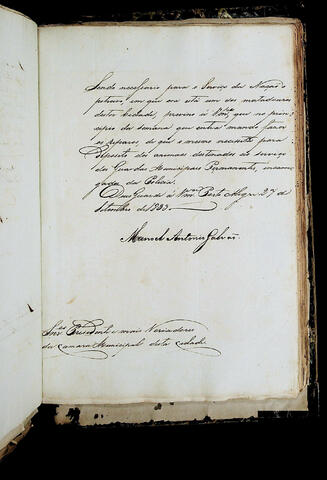 Sendo necessario para o Serviço da Nação o
potreiro, em que ora está um dos matadouros
desta Cidade, previno á V.mces que no prin-
cipio da semana que entra mando fazer
os reparos de que o mesmo necessita para
deposito dos animaes destinados ao serviço
das Guardas Municipaes Permanentes, encarre-
gadas da Policia.
Deus Guarde á V.mces Porto Alegre 27 de
Setembro de 1833.
Manoel Antonio Galvão
Snr.es Presidente e mais Vereadores
da Camara Municipal desta cidade